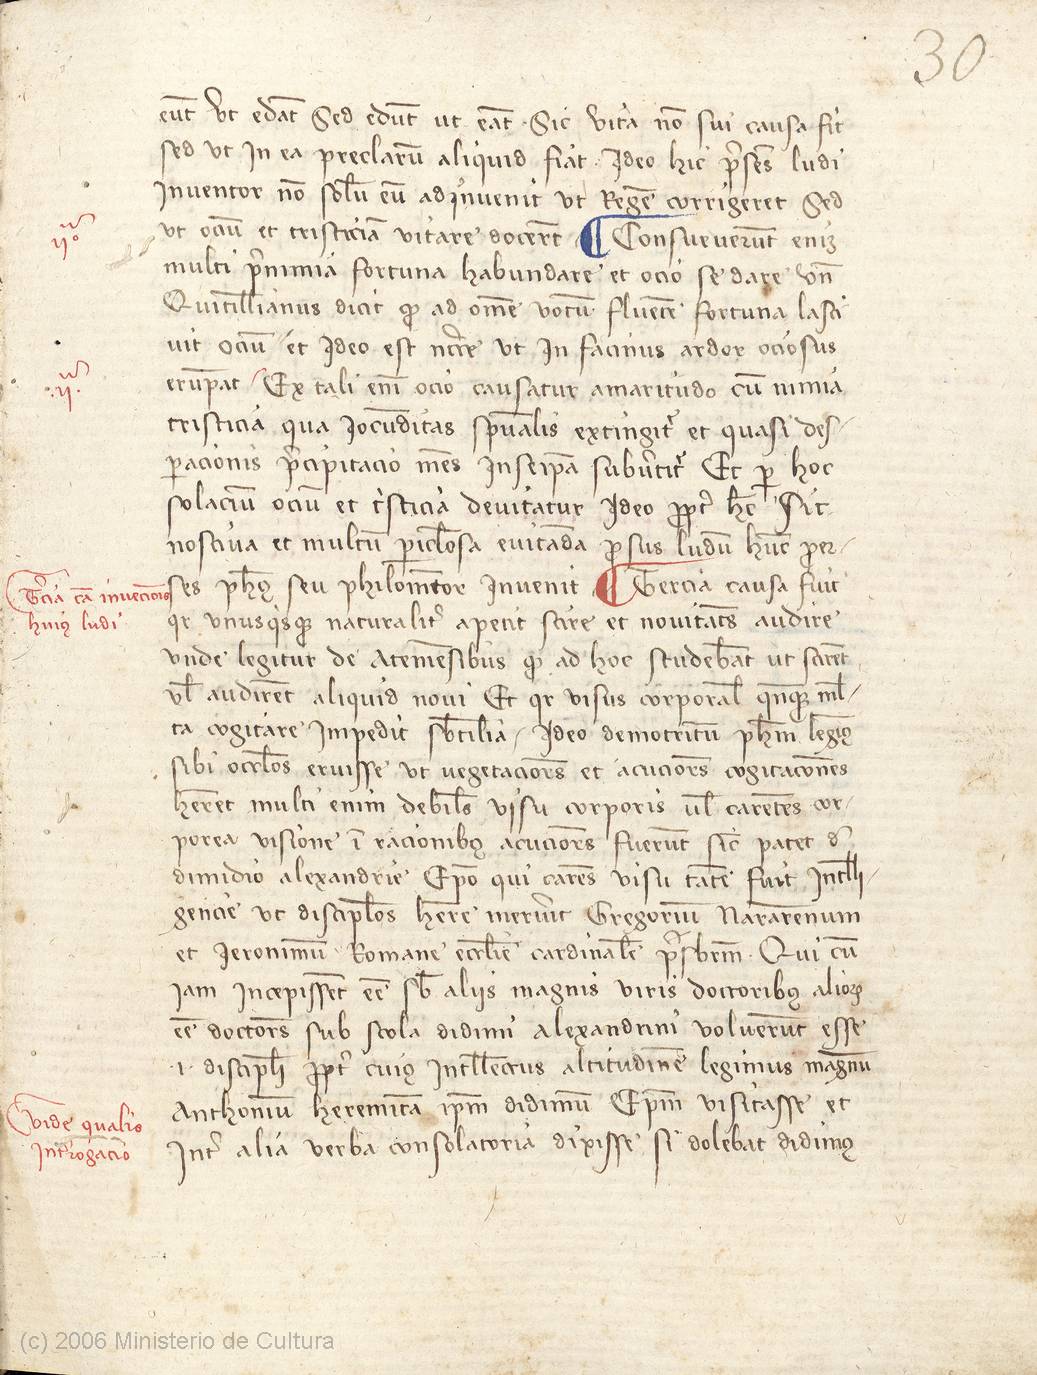 30
eūt Vt edāt Sed edūt ut eāt. Sic Vita nō sui causa fit
sed Vt In ea preclarū aliquid fiat. Ideo hic p̄sēs ludi
Inventor nō solū eū adinvenit Vt Regē corrigeret Sed
vt ociū et tristiciā vitare docēt ¶ Consueverūt enim
multi p̄nimia fortuna habundare et ocio se dare Vn̄
Quitillianus dicit ꝙ ad ōmē votū fluētē fortuna lasci
vit ociū et Ideo est nc̄c̄e Vt In facinus ardor ociosus
erūpat Ex tali enī ocio causatur amaritudo cū nimia
tristicia qua Jocūditas sp̄ualis extingit̄ et quasi des-
ꝑacionis p̄cipitacio mēs Inseipā subv̄tit̄ Et ꝑ hoc
solaciū ociū et t̄sticia devitatur Ideo ꝓpt̄ hēc Sit
nosciva et multū ꝑicl̄osa evitāda ꝓsus ludū hūc per-
ses ph̄us seu philomētor Invenit ¶ Tercia causa fuit
qr vnusqisꝙ naturalit̄ apetit scire et novitāts audire
vnde legitur de Atemēsibus ꝙ ad hoc studebāt ut scirēt
vl̄ audirēt aliquid novi Et qr visus corporal̄ qn̄qꝫ ml̄-
ta cogitare Impedit sb̄tilia, Ideo demotritū ph̄m legimꝰ
sibi ocl̄os eruisse vt vegetaciōrs et acuciōrs cogitacōnes
h̄eret multi enim debil̄s visu corporis ul̄ carētes cor-
porea visione ī racionibꝰ acuciōrs fuerūt sic̄ patet d̄
dimidio alexandrie Ep̄o qui carēs visu tātē fuit Int̄lli-
gencie vt discipl̄os h̄ere meruit Gregoriū Nazarenum
et Jeronimū Romane eccl̄ie cardinalē p̄sbrm̄. Qui cū
Jam Incepissēt ēē sb̄ aliis magnis viris doctoribꝰ alioꝝ
ēē doctōrs sub scola didimi alexandrini voluerūt esse
.i. discipl̄i ꝓpt̄ cuiꝰ Int̄llectus altitudinē legimus magnū
Anthoniū heremitā ipm̄ didimū Ep̄m visitasse et
Int̄ alia verba consolatoria dixisse si dolebat didimꝰ
T̄cia cā invēcionis
huiꝰ ludi
Vide qualis
Int̄rogacio
(c) 2006 Ministerio de Cultura